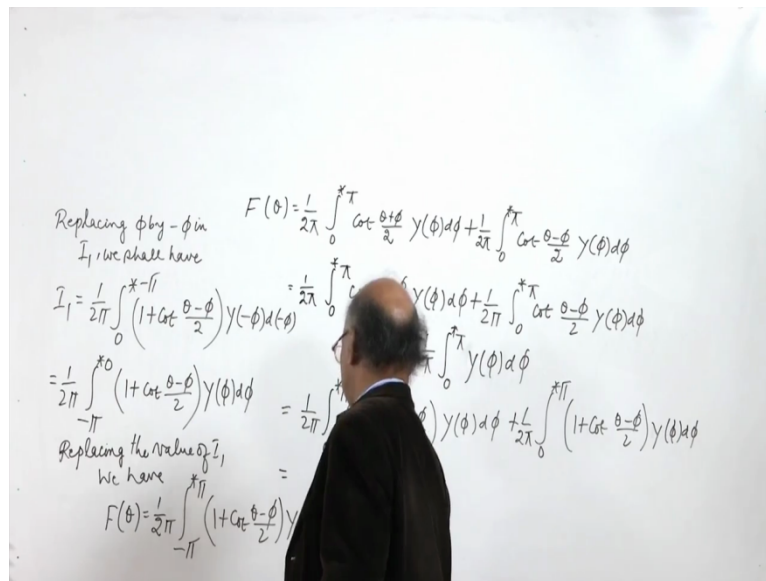 Replacing ϕ by −ϕ in
I₁, we shall have
I₁ = 1/2π ∫₀^{*−π} (1+cot (θ−ϕ)/2) y(−ϕ)d(−ϕ)
= 1/2π ∫_{−π}^{*0} (1+cot (θ−ϕ)/2) y(ϕ)dϕ
Replacing the value of I₁
We have
F(θ) = 1/2π ∫_{−π}^{*π} (1+cot (θ−ϕ)/2) y
F(θ) = 1/2π ∫₀^{*π} cot (θ+ϕ)/2 y(ϕ)dϕ + 1/2π ∫₀^{*π} cot (θ−ϕ)/2 y(ϕ)dϕ
= 1/2π ∫₀^{*π} y(ϕ)dϕ + 1/2π ∫₀^{*π} cot (θ−ϕ)/2 y(ϕ)dϕ
∫₀^{*π} y(ϕ)dϕ
= 1/2π ∫ ) y(ϕ)dϕ + 1/2π ∫₀^{*π} (1+cot (θ−ϕ)/2) y(ϕ)dϕ
=